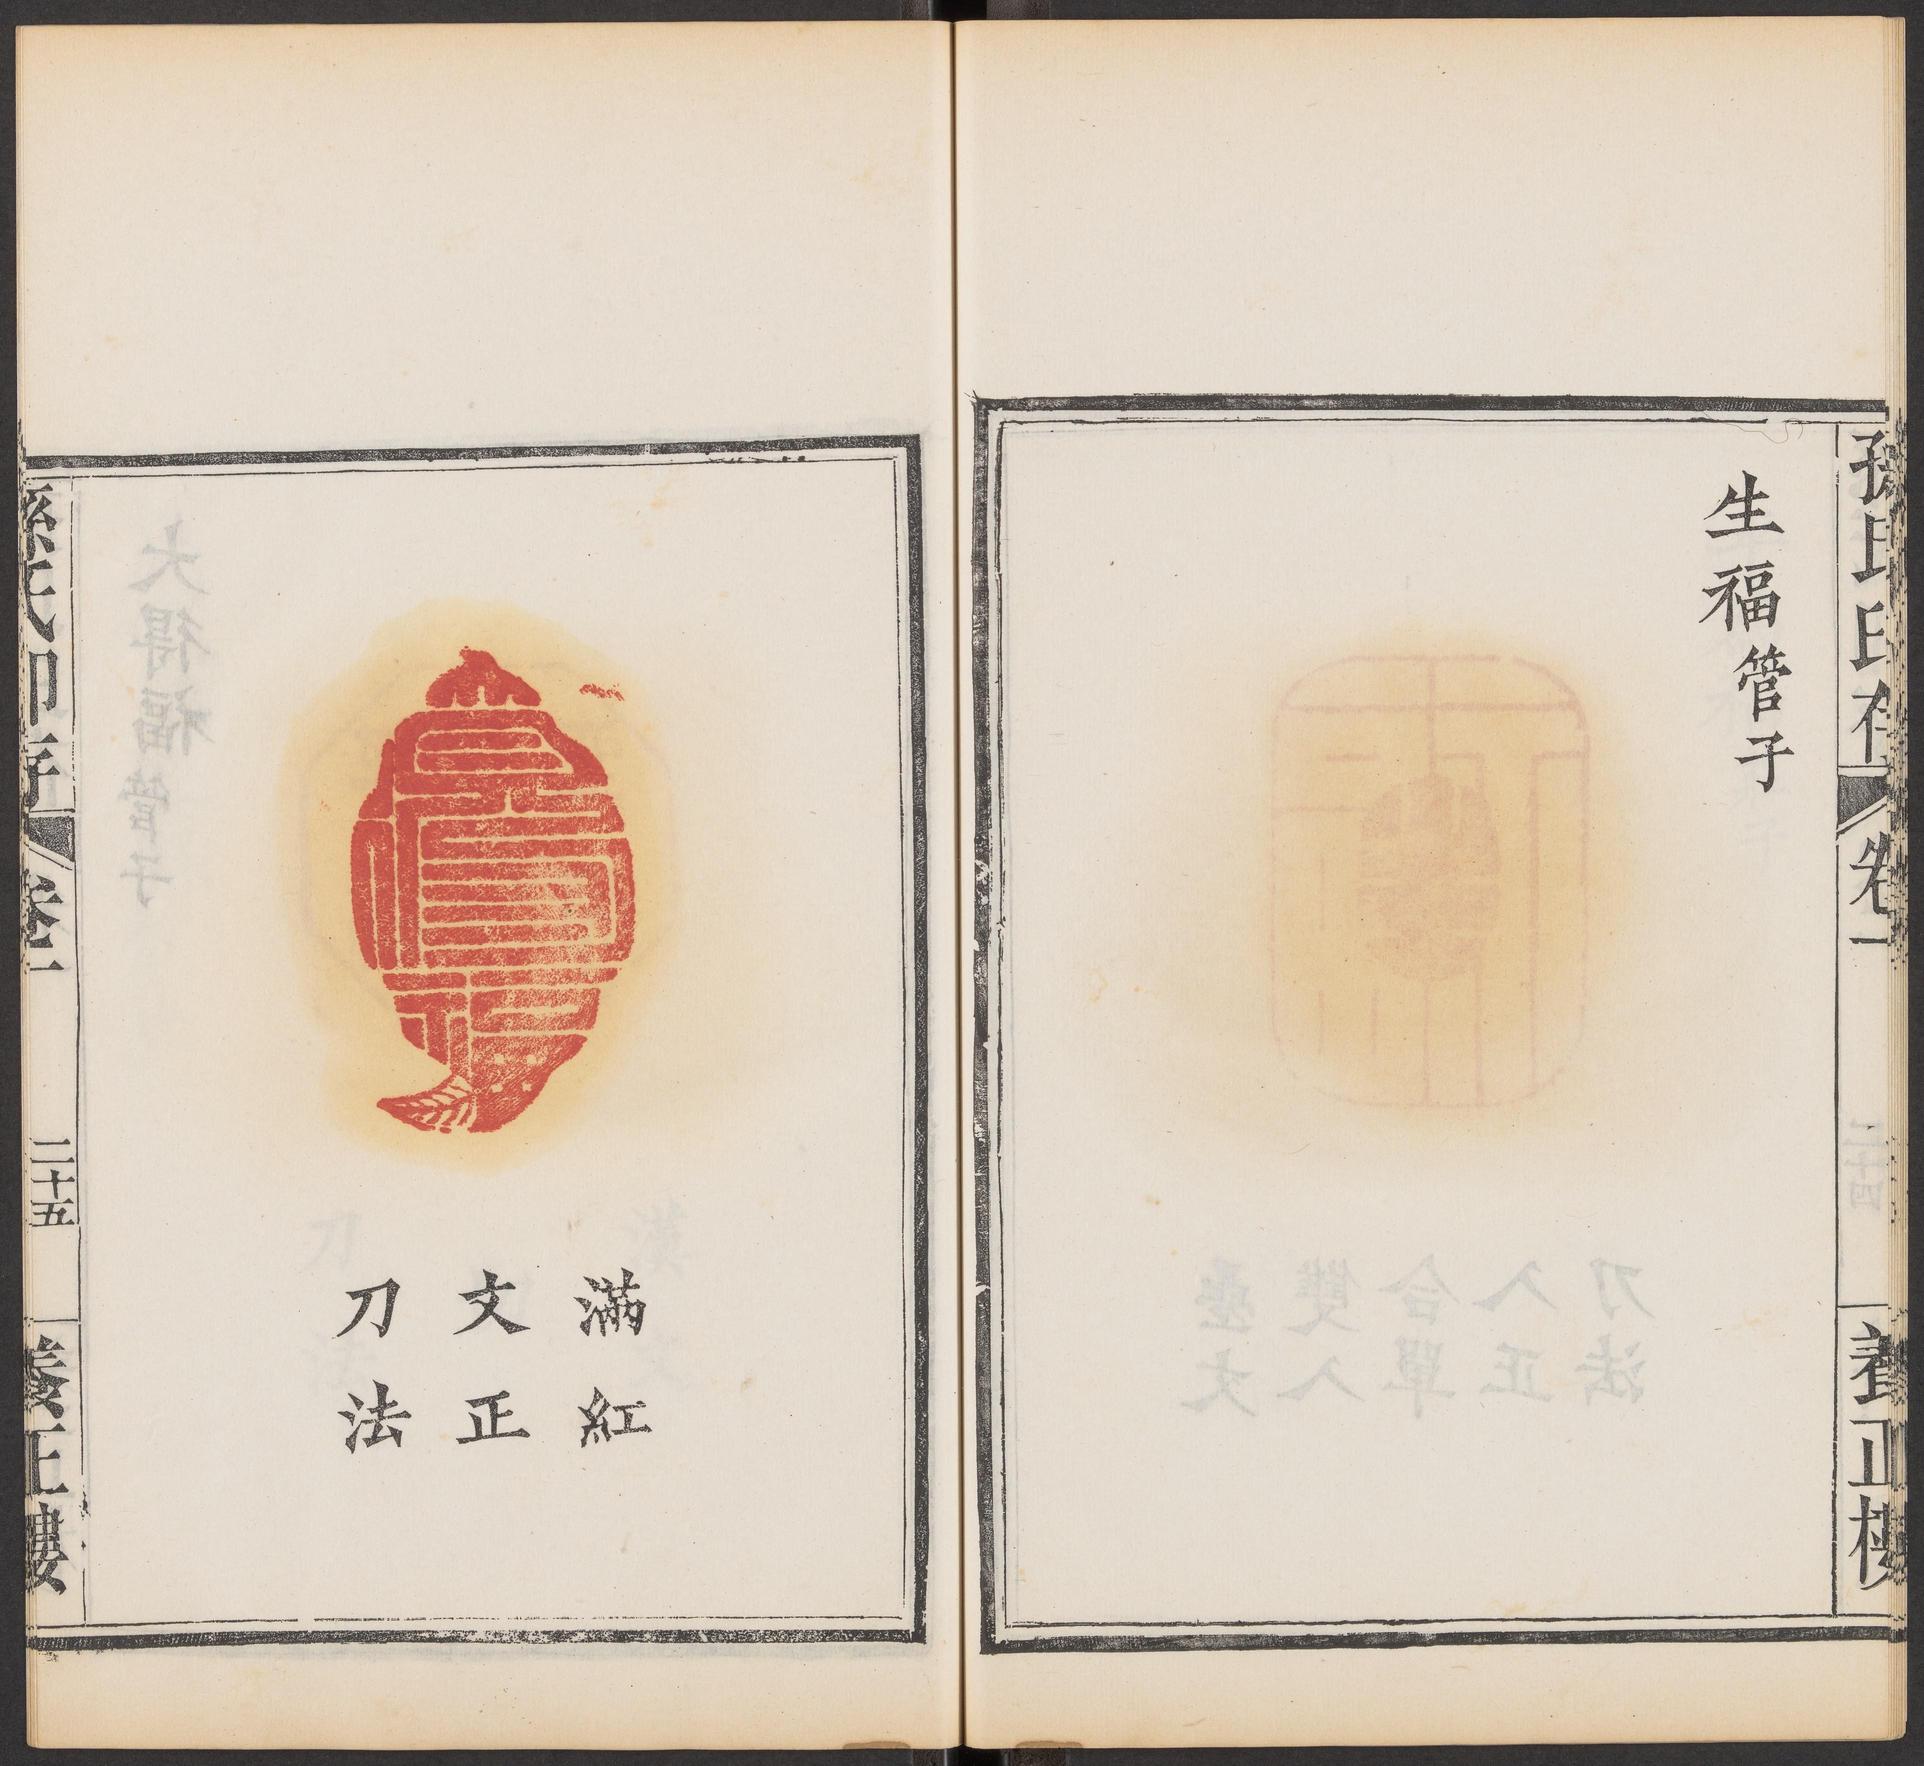 孫氏印存
卷一
養正樓
生福管子
滿紅
文正
刀法
孫氏印存
卷一
二十五
養正樓